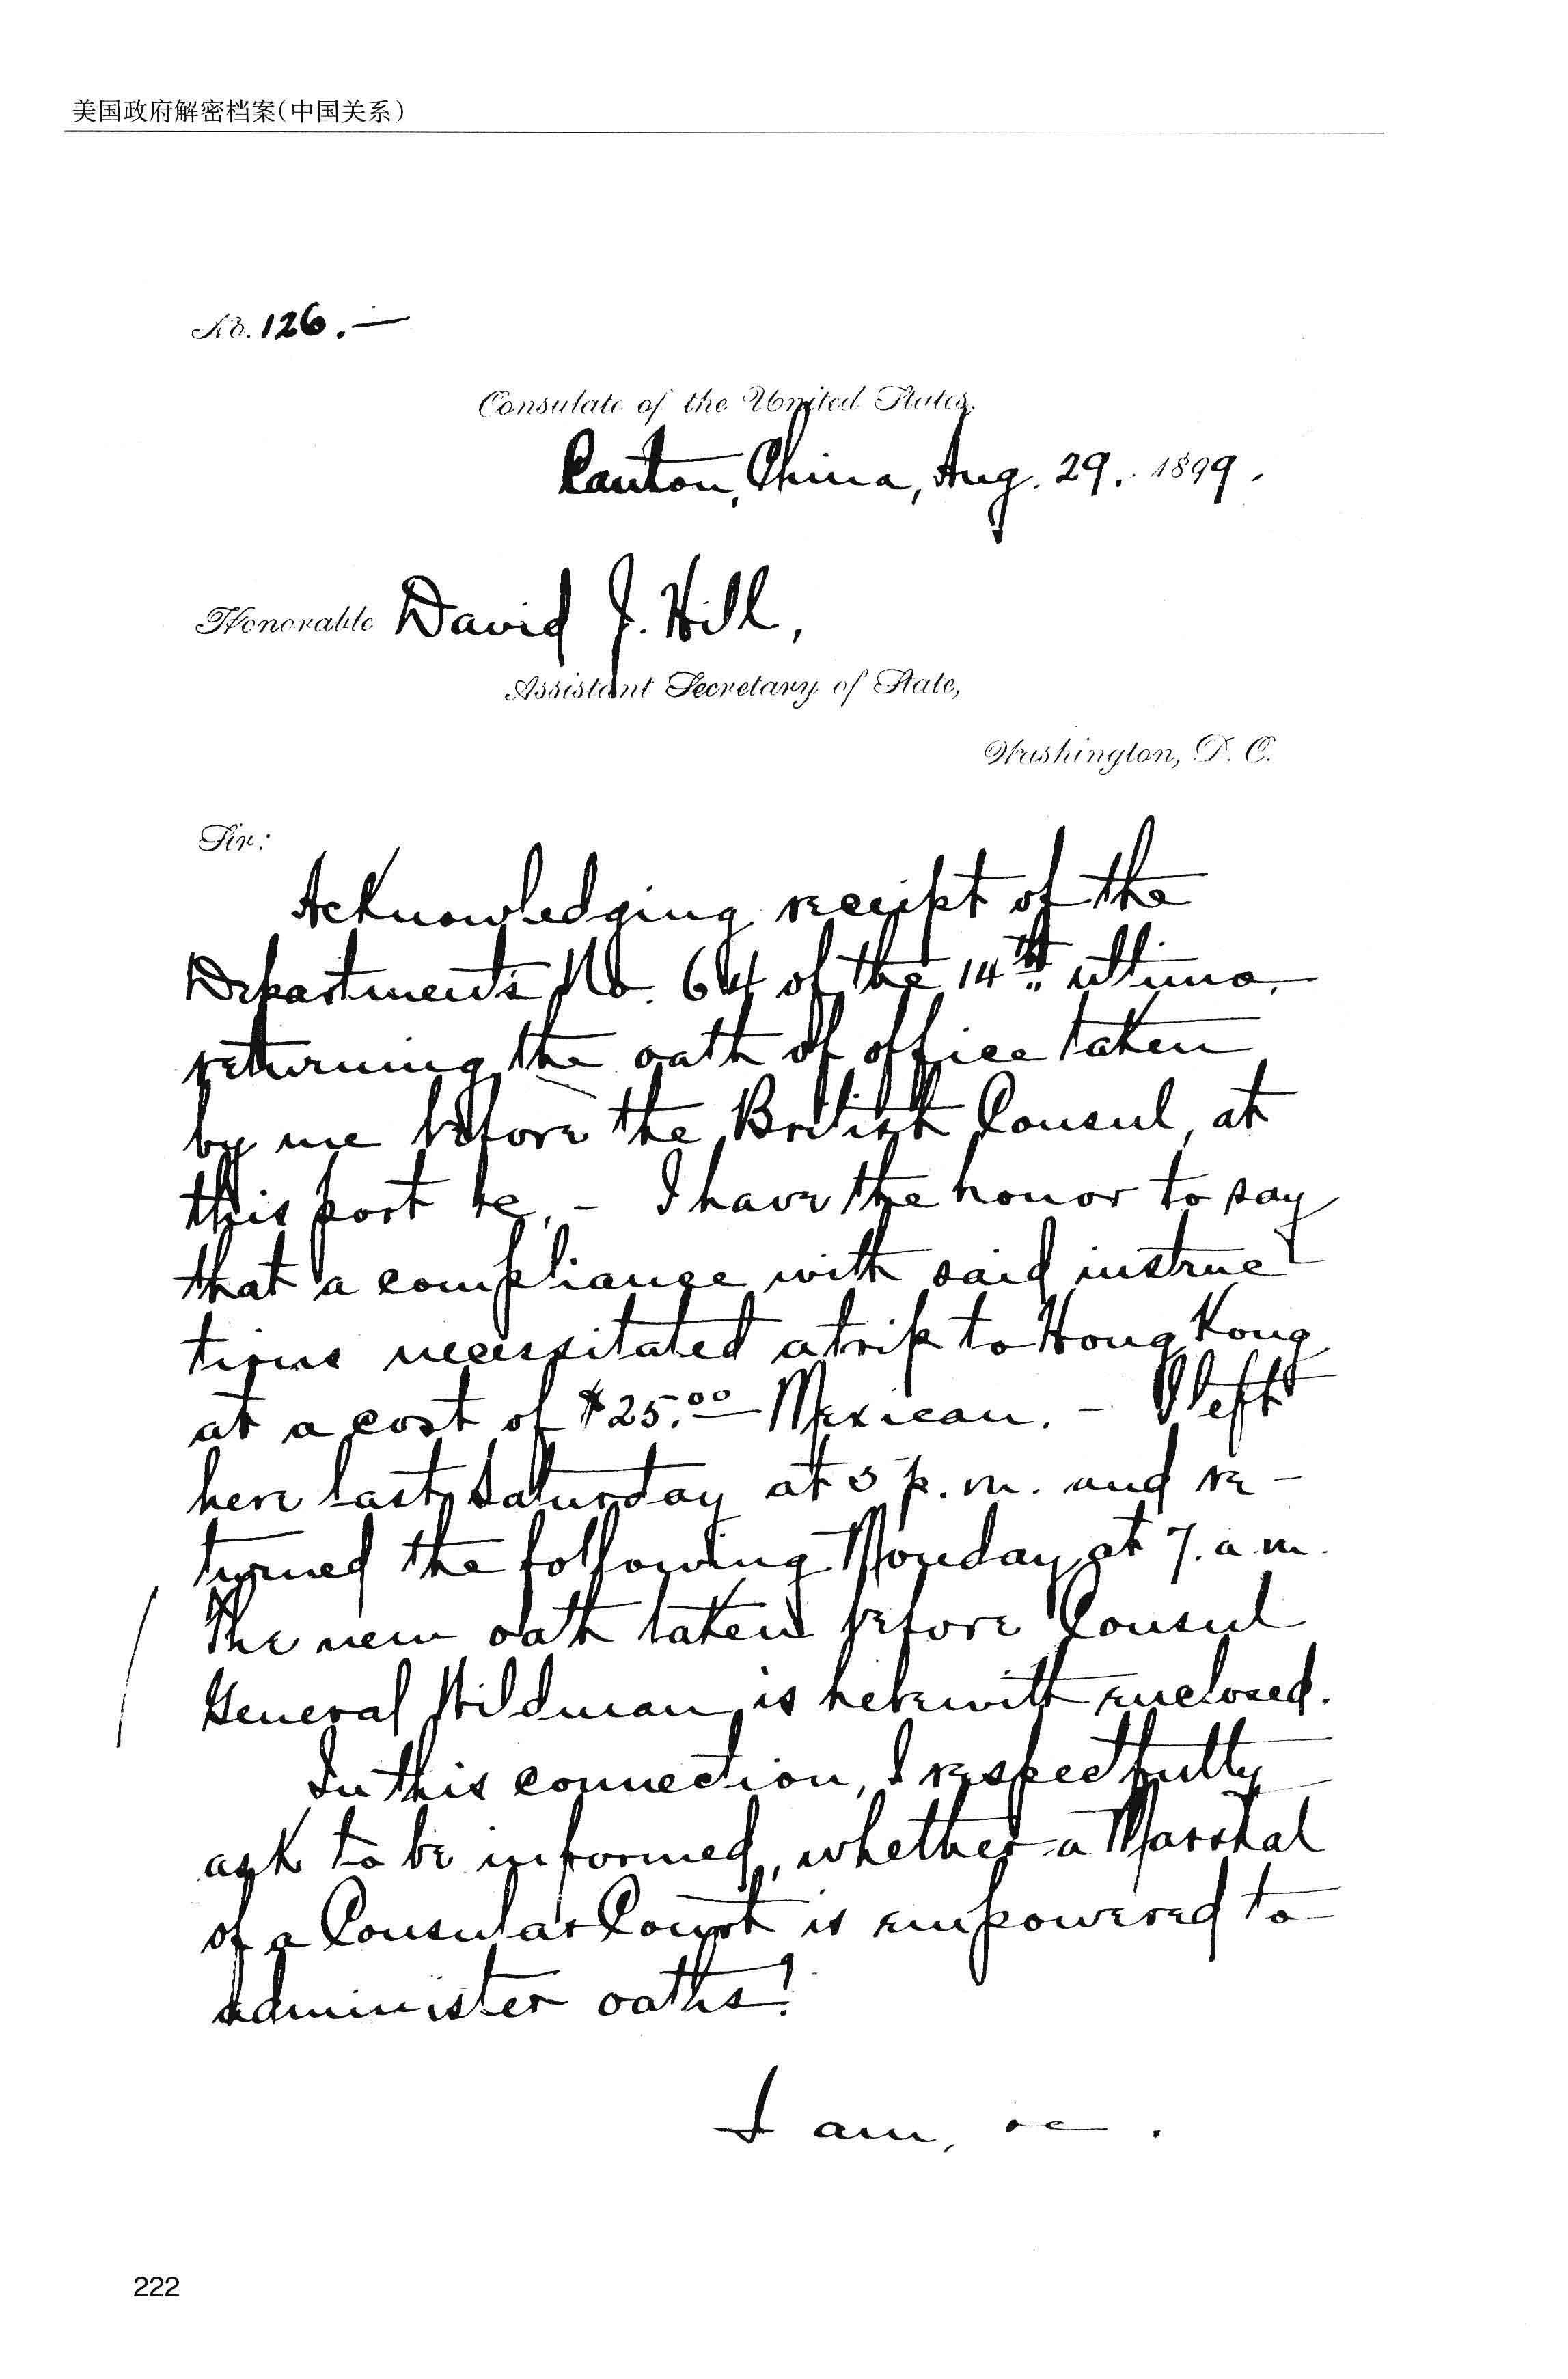 美国政府解密档案(中国关系)
No. 126.—
Consulate of the United States,
Canton, China, Aug. 29. 1899.
Honorable David J. Hill,
Assistant Secretary of State,
Washington, D. C.
Sir:
Acknowledging receipt of the
Department's No. 64 of the 14th ultimo,
returning the oath of office taken
by me before the British Consul, at
this port &c, - I have the honor to say
that a compliance with said instruc-
tions necessitated a trip to Hong Kong
at a cost of $25.00 Mexican. - I left
here last Saturday at 5 p. m. and re-
turned the following Monday at 7. a. m.
The new oath taken before Consul
General Wildman, is herewith enclosed.
In this connection, I respectfully
ask to be informed, whether a Marshal
of a Consular Court is empowered to
administer oaths?
I am, &c.
222